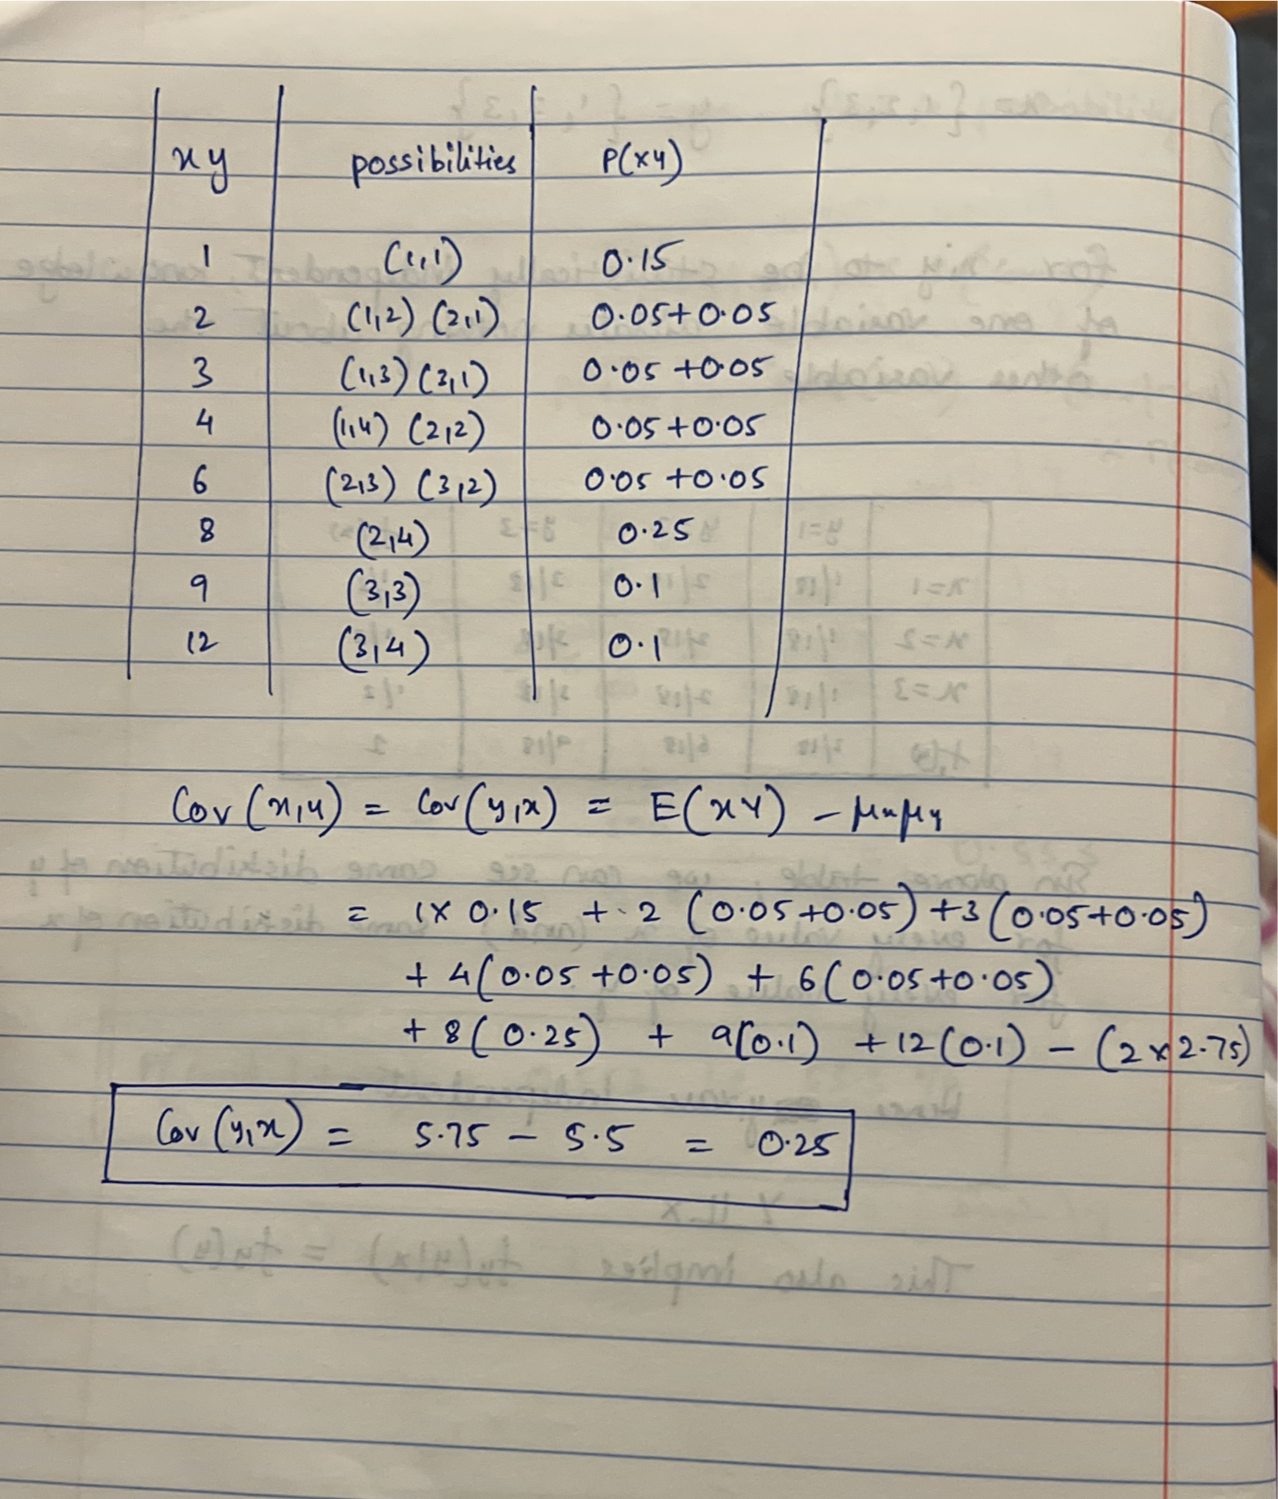 xy possibilities P(xy)
1 (1,1) 0.15
2 (1,2) (2,1) 0.05+0.05
3 (1,3) (3,1) 0.05+0.05
4 (1,4) (2,2) 0.05+0.05
6 (2,3) (3,2) 0.05+0.05
8 (2,4) 0.25
9 (3,3) 0.1
12 (3,4) 0.1
Cov(x,y) = Cov(y,x) = E(XY) - μxμy
= 1×0.15 + 2(0.05+0.05)+3(0.05+0.05)
+ 4(0.05+0.05) + 6(0.05+0.05)
+ 8(0.25) + 9(0.1) +12(0.1) - (2×2.75)
Cov(y,x) = 5.75 - 5.5 = 0.25